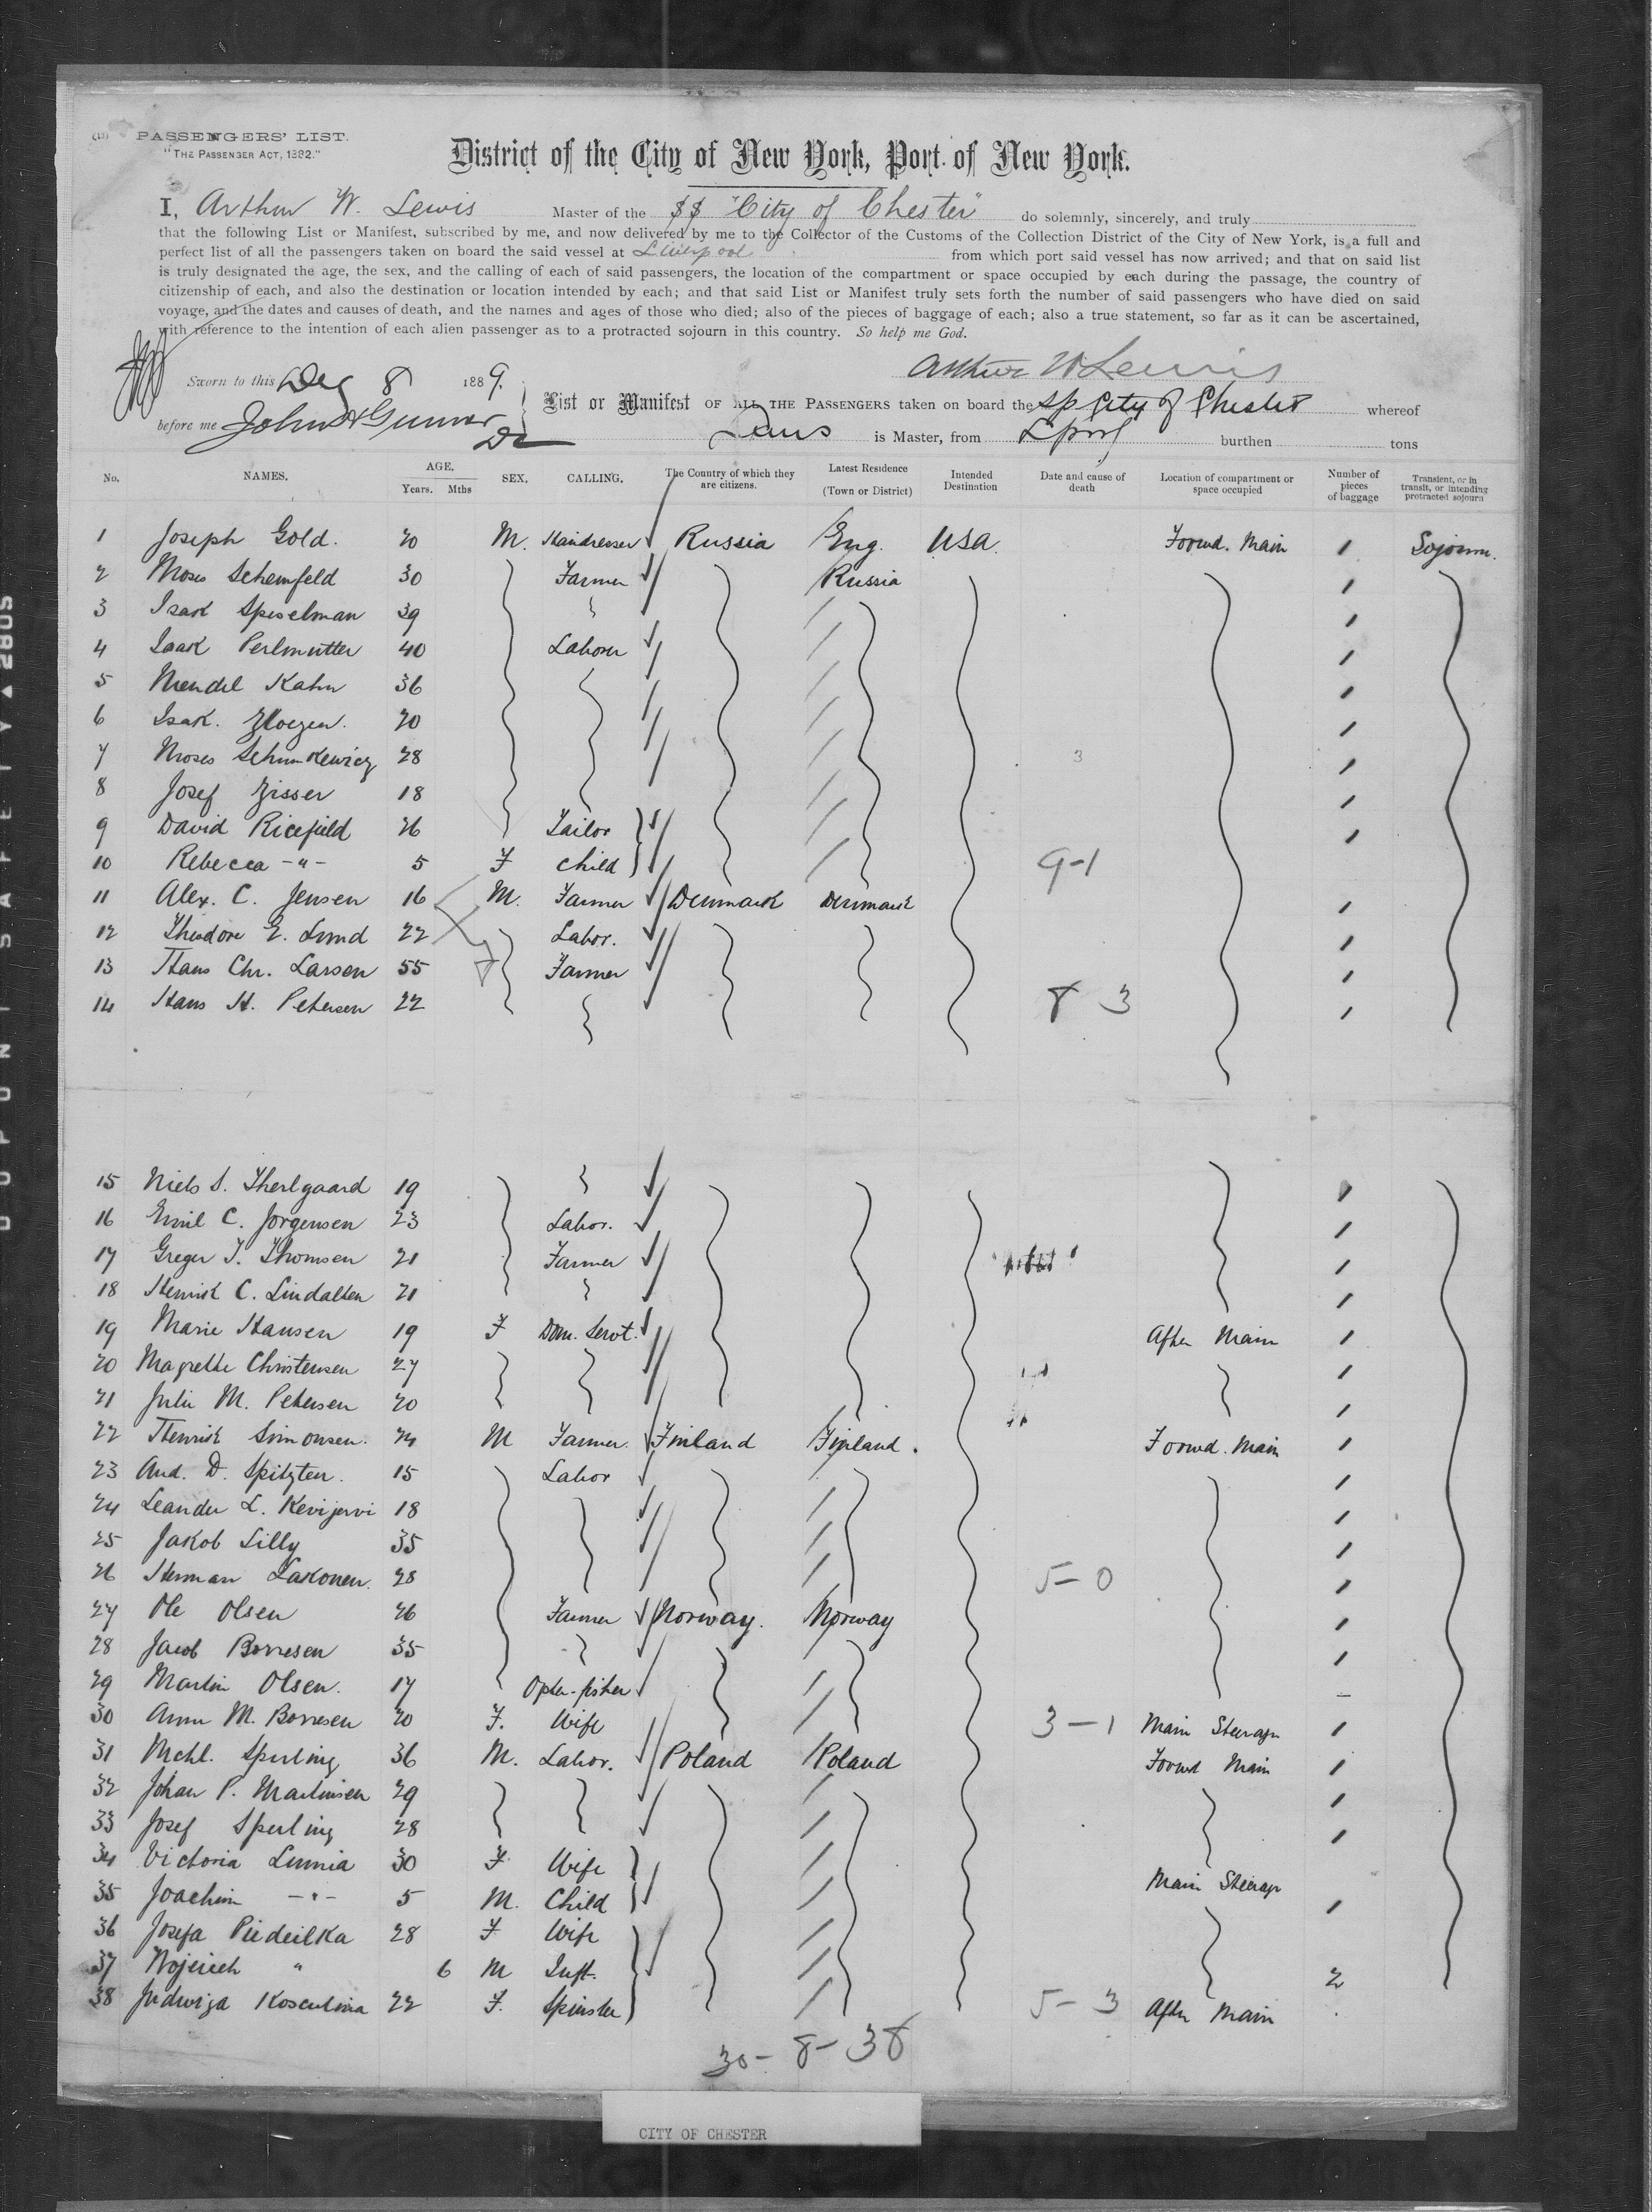 (15) PASSENGERS' LIST.
"THE PASSENGER ACT, 1882."
District of the City of New York, Port of New York.
I, Arthur W. Lewis Master of the SS "City of Chester" do solemnly, sincerely, and truly
that the following List or Manifest, subscribed by me, and now delivered by me to the Collector of the Customs of the Collection District of the City of New York, is a full and
perfect list of all the passengers taken on board the said vessel at Liverpool from which port said vessel has now arrived; and that on said list
is truly designated the age, the sex, and the calling of each of said passengers, the location of the compartment or space occupied by each during the passage, the country of
citizenship of each, and also the destination or location intended by each; and that said List or Manifest truly sets forth the number of said passengers who have died on said
voyage, and the dates and causes of death, and the names and ages of those who died; also of the pieces of baggage of each; also a true statement, so far as it can be ascertained,
with reference to the intention of each alien passenger as to a protracted sojourn in this country. So help me God.
Arthur W Lewis
Sworn to this Dec 8 1889.
before me John
List or Manifest OF ALL THE PASSENGERS taken on board the City of Chester whereof
Lewis is Master, from Lpool burthen tons
No. NAMES. AGE. Years. Mths SEX. CALLING. The Country of which they are citizens. Latest Residence (Town or District) Intended Destination Date and cause of death Location of compartment or space occupied Number of pieces of baggage Transient, or in transit, or intending protracted sojourn
1 Joseph Gold. 20 M. Russia Eng. USA. Forwd. Main 1 Sojourn.
2 Moses 30 Farmer Russia 1
3 Isak Speselman 39 1
4 Isak Perlmutter 40 Laborer 1
5 Mendel Kahn 36 1
6 Isak. 20 1
7 Moses 28 3 1
8 Josef Zisser 18 1
9 David Ricefield 26 Tailor 1
10 Rebecca -"- 5 F child 9-1
11 Alex. C. Jensen 16 M. Farmer Denmark Denmark 1
12 Theodore E. Lund 22 Labor. 1
13 Hans Chr. Larsen 55 Farmer 1
14 Hans H. Petersen 22 8 3 1
15 Niels S. 19 1
16 Emil C. Jorgensen 23 Labor. 1
17 Greger T. Thomsen 21 Farmer 1
18 Henrik C. 21 1
19 Marie Hansen 19 F Dom. Servt. After Main 1
20 Magrethe Christensen 27 1
21 Julie M. Petersen 20 1
22 Henrik Simonsen. 24 M Farmer. Finland Finland. Forwd. Main 1
23 And. D. 15 Labor 1
24 Leander L. Kevijervi 18 1
25 Jakob Lilly 35 1
26 Herman Lakonen. 28 5-0 1
27 Ole Olsen 26 Farmer Norway. Norway 1
28 Jacob Borresen 35 1
29 Martin Olsen. 17
30 Anna M. Borresen 20 F. Wife 3-1 Main Steerage 1
31 Mchl. Sperling 36 M. Labor. Poland Poland Forwd Main 1
32 Johan P. Martinsen 29 1
33 Josef Sperling 28 1
34 Victoria 30 F Wife Main Steerage
35 Joachim -"- 5 M. Child 1
36 Josefa 28 F Wife
37 Wojciech " 6 M Inft. 2
38 Judwiga 22 F. Spinster 5-3 After Main
30-8-38
CITY OF CHESTER
DUPONT SAFETY ▲ 2805